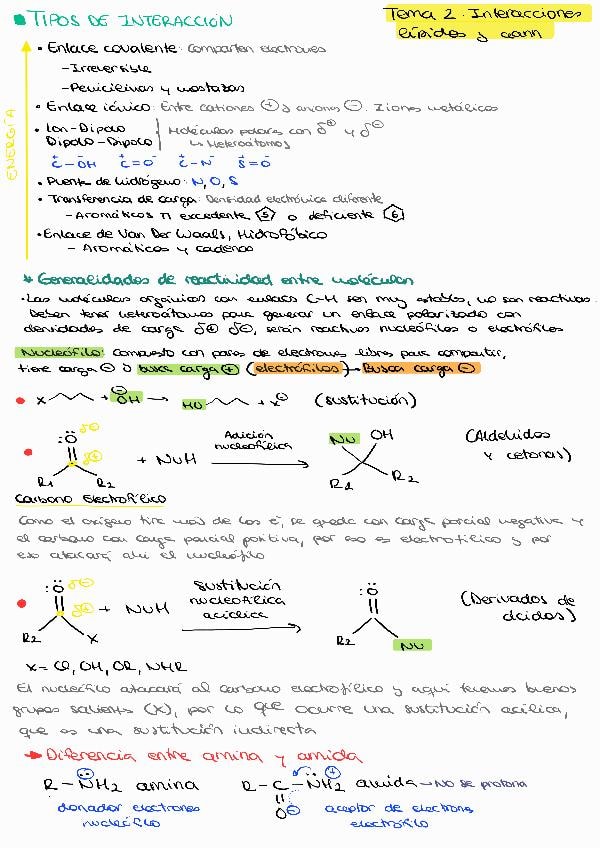 TIPOS DE INTERACCIÓN
Tema 2. Interacciones
lípidos y
ENERGÍA
• Enlace covalente: Comparten electrones
- Irreversible
- Penicilinas y mostazas
• Enlace iónico: Entre cationes ⊕ y aniones ⊖. Ziones metálicos
• Ion-Dipolo
Dipolo-Dipolo
Moléculas polares con δ⊕ y δ⊖
↳ Heteroátomos
C-OH C=O C-N S=O
• Puente de hidrógeno: N, O, S
• Transferencia de carga: Densidad electrónica diferente
- Aromáticos π excedente 5 o deficiente 6
• Enlace de Van Der Waals, Hidrofóbico
- Aromáticos y cadenas
* Generalidades de reactividad entre moléculas
• Las moléculas orgánicas con enlaces C-H son muy estables, no son reactivas.
Deben tener heteroátomos para generar un enlace polarizado con
densidades de carga δ⊕ δ⊖, serán reactivos nucleófilos o electrófilos
Nucleófilo: Compuesto con pares de electrones libres para compartir,
tiene carga ⊖ o busca carga ⊕ (electrófilos) → Busca carga ⊖
X + ⊖OH → HO + X⊖ (sustitución)
:Ö δ⊖
δ⊕ + NuH Adición nucleofílica Nu OH (Aldehídos
R1 R2 R1 R2 y cetonas)
Carbono Electrofílico
Como el oxígeno tira más de los e⁻, se queda con carga parcial negativa y
el carbono con carga parcial positiva, por eso es electrofílico y por
eso atacará ahí el nucleófilo
:Ö δ⊖
δ⊕ + NuH Sustitución nucleofílica acílica :Ö (Derivados de
R2 X R2 Nu ácidos)
X = Cl, OH, OR, NHR
El nucleófilo atacará al carbono electrofílico y aquí tenemos buenos
grupos salientes (X), por lo que ocurre una sustitución acílica,
que es una sustitución indirecta
→ Diferencia entre amina y amida
R-N̈H2 amina R-C-N̈H2 amida → No se protona
O⊖
donador electrones aceptor de electrones
nucleófilo electrófilo